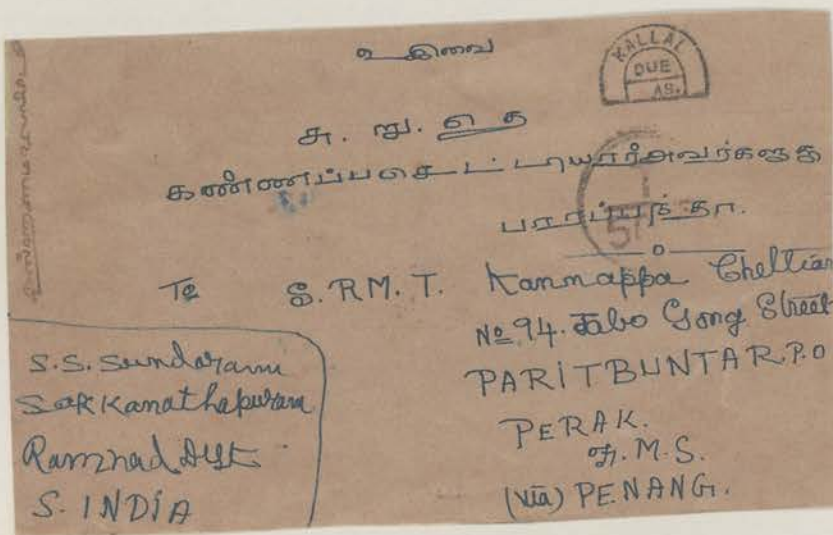 உ சிவை
KALLAL
DUE
AS.
சு. று. தெ
கண்ணப்பசெட்டியார்அவர்களுக்கு
To S. RM. T. Kannappa Chettiar
No 94. Gong Street
PARITBUNTAR.P.O
PERAK.
F.M.S.
(via) PENANG.
S.S. Sundaram
Sokkanathapuram
Ramnad Dist
S. INDIA